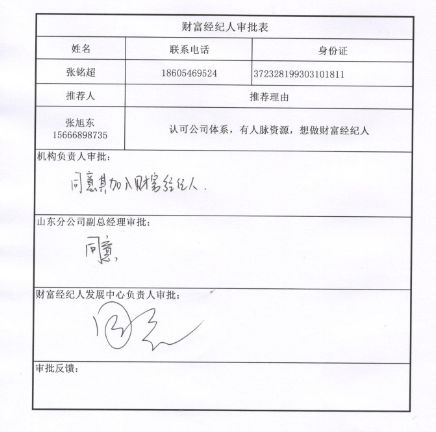 财富经纪人审批表
姓名 联系电话 身份证
张铭超 18605469524 372328199303101811
推荐人 推荐理由
张旭东
15666898735
认可公司体系，有人脉资源，想做财富经纪人
机构负责人审批：
同意其加入财富经纪人.
山东分公司副总经理审批：
同意.
财富经纪人发展中心负责人审批：
同意
审批反馈：